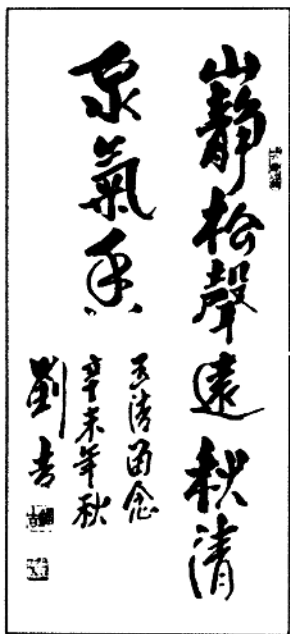 山靜松聲遠秋清
泉氣香
玉清留念
辛未年秋
劉吉